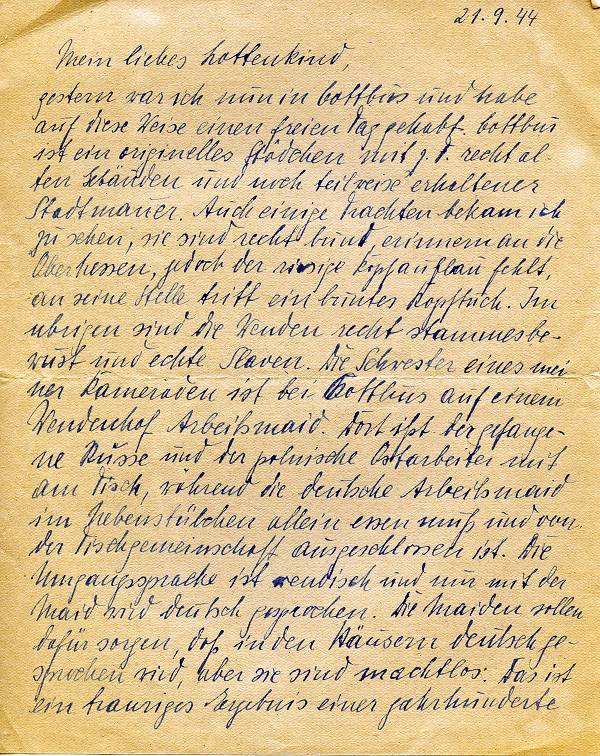 21.9.44
Mein liebes Lottenkind,
gestern war ich nun in Cottbus und habe
auf diese Weise einen freien Tag gehabt. Cottbus
ist ein originelles Städchen mit z. T. recht al
ten Ständen und noch teilweise erhaltener
Stadtmauer. Auch einige Trachten bekam ich
zu sehen, sie sind recht bunt, erinnern an die
Oberhessen, jedoch der riesige Kopfaufbau fehlt,
an seine Stelle tritt ein buntes Kopftuch. Im
übrigen sind die Wenden recht stammesbe-
wust und echte Slaven. Die Schwester eines mei
ner Kameraden ist bei Cottbus auf einem
Wendenhof Arbeitsmaid. Dort ißt der gefange-
ne Russe und der polnische Ostarbeiter mit
am Tisch, während die deutsche Arbeitsmaid
im Nebenstübchen allein essen muß und von
der Tischgemeinschaft ausgeschlossen ist. Die
Umgangssprache ist wendisch und nur mit der
Maid wird deutsch gesprochen. Die Maiden sollen
dafür sorgen, daß in den Häusern deutsch ge-
sprochen wird, aber sie sind machtlos. Das ist
ein trauriges Ergebnis einer jahrhunderte